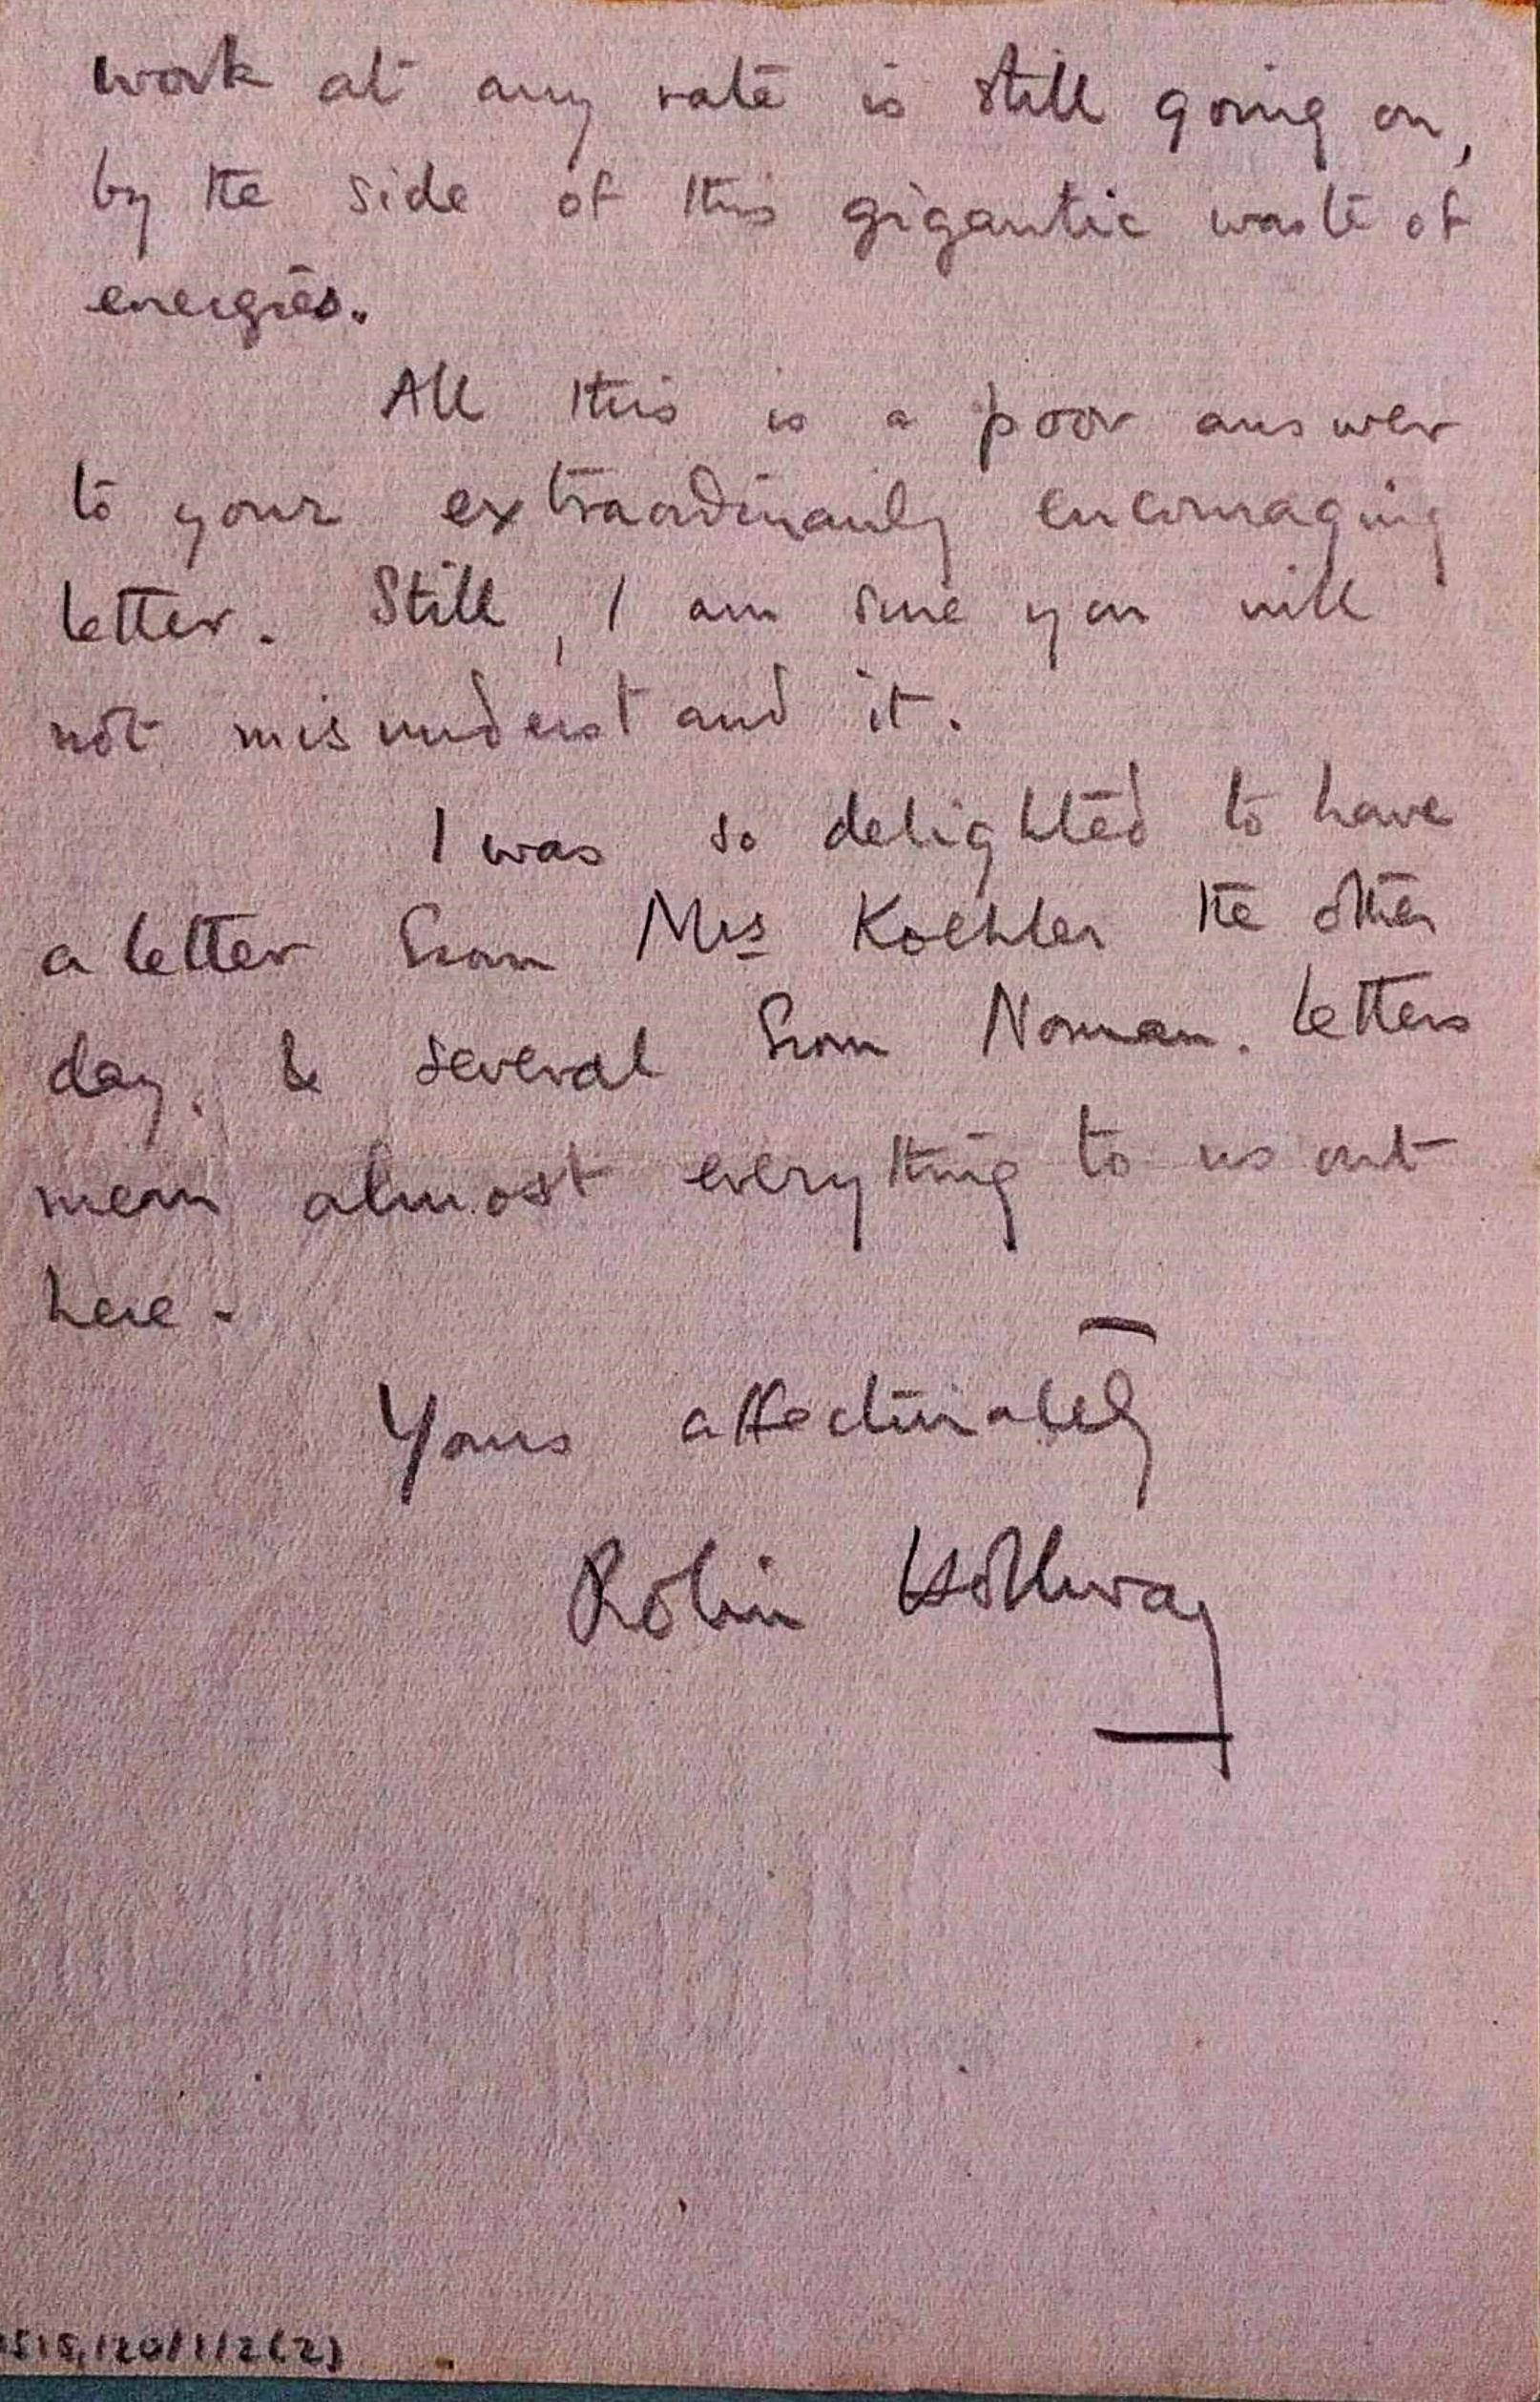 work at any rate is still going on,
by the side of this gigantic waste of
energies.
All this is a poor answer
to your extraordinarily encouraging
letter. Still, I am sure you will
not misunderstand it.
I was so delighted to have
a letter from Mrs Koehler the other
day, & several from Norman. Letters
mean almost everything to us out
here.
Yours affectionately
Robin Hollway
1515,120/1/2(2)